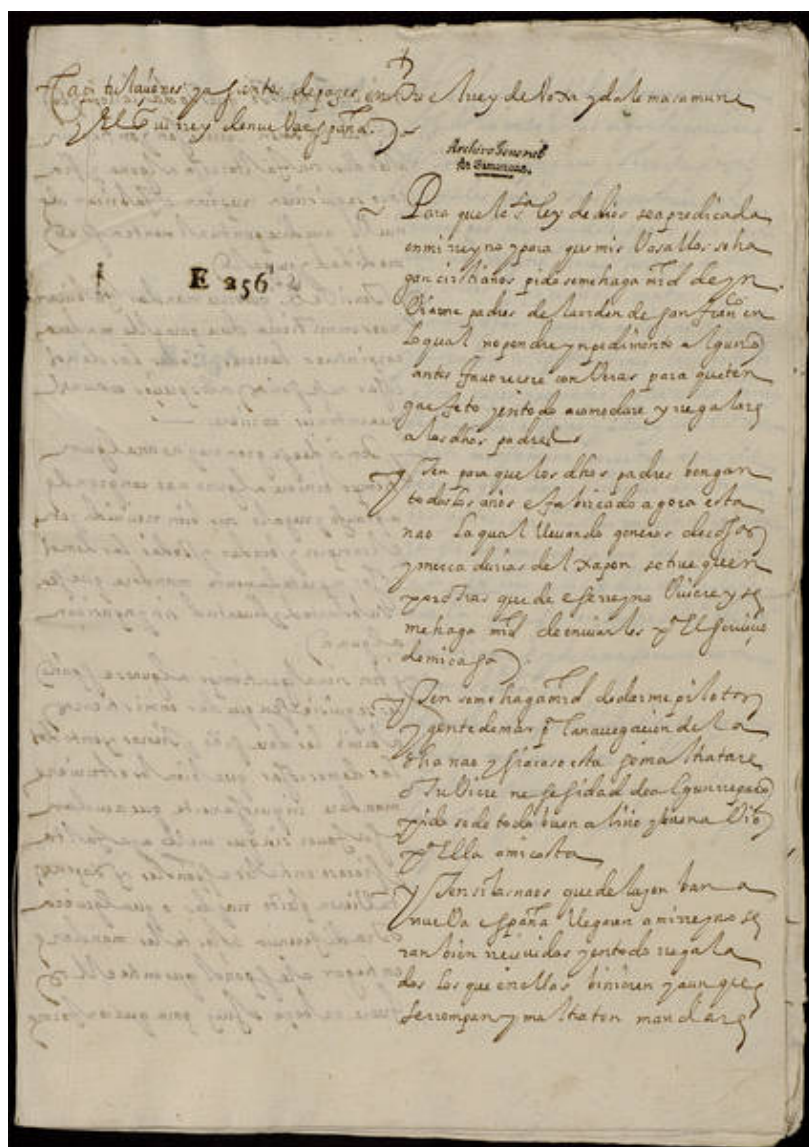 Capitulaciones y asientos de pazes entre el rey de Voxu ydate masamune
y El Virrey de nueva españa.
Archivo General
de Simancas.
E 256
Para que la sta ley de dios sea predicada
en mi reyno y para que mis Vasallos se ha
gan cristianos pido se me haga md de yn
biarme padres de la orden de san franco en
lo qual no pondre ynpedimento alguno
antes favorecere con Veras para que ten
ga efeto y en todo acomodare y regalare
a los dhos padres
yten para que los dhos padres bengan
todos los años e fabricado agora esta
nao la qual llevando generos de cosas
y mercadurias del Xapon se truequen
por otras que de ese reyno Viniere y se
me haga md de enviarles pa El servicio
de mi casa
yten se me haga md de darme pilotos
y gente de mar pa la navegacion de la
dha nao y si acaso esta se maltratare
o tuviere nesesidad de algun reparo
pido se de todo buen aliño y buena
pa Ella a mi costa
yten si las naos que de luçon ban a
nueva españa llegaren a mi reyno se
ran bien recividos y en todo regala
dos los que en ellas binieren y aunque
se rompan y maltraten mandare